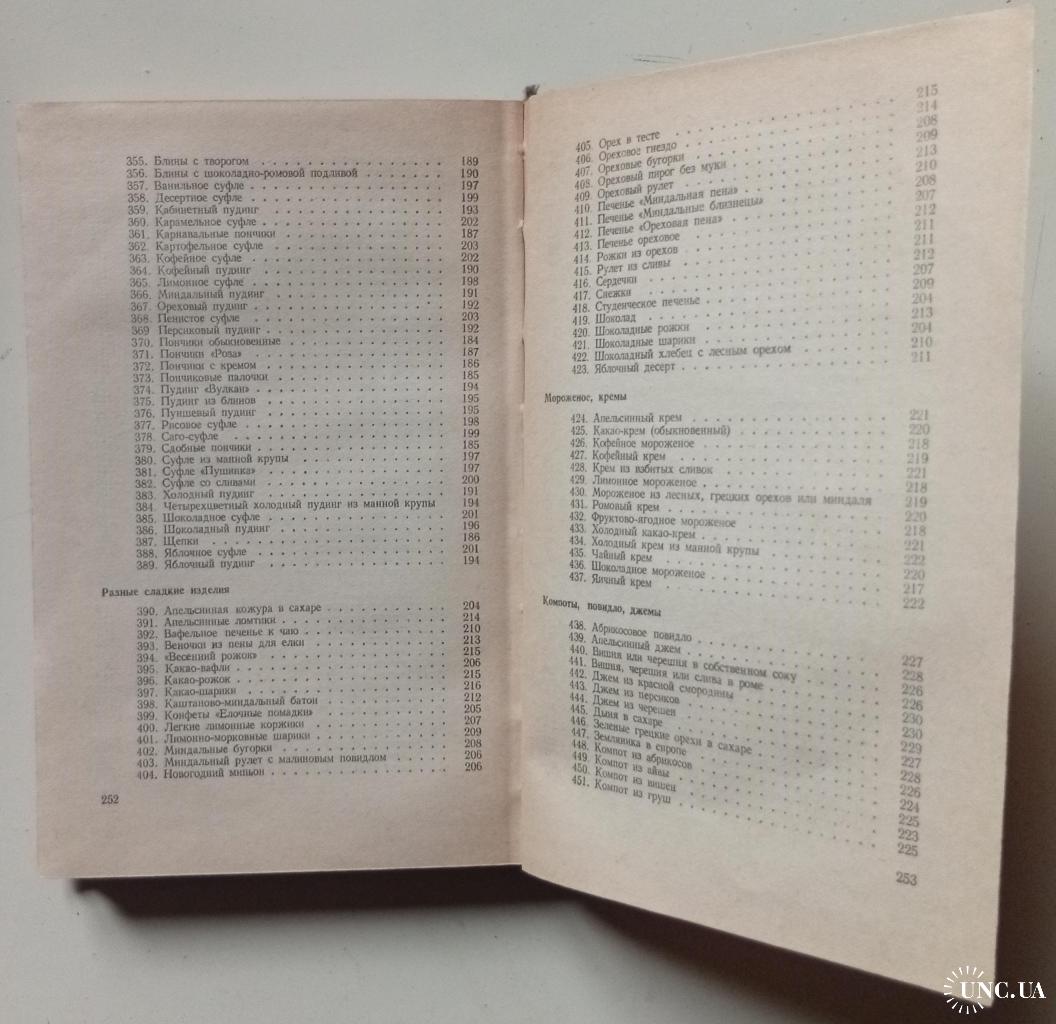 355. Блины с творогом . . . . . . . . . . . . . 189
356. Блины с шоколадно-ромовой подливой . . . . . . . 190
357. Ванильное суфле . . . . . . . . . . . . . 197
358. Десертное суфле . . . . . . . . . . . . . 199
359. Кабинетный пудинг . . . . . . . . . . . . . 193
360. Карамельное суфле . . . . . . . . . . . . . 202
361. Карнавальные пончики . . . . . . . . . . . . . 187
362. Картофельное суфле . . . . . . . . . . . . . 203
363. Кофейное суфле . . . . . . . . . . . . . 202
364. Кофейный пудинг . . . . . . . . . . . . . 190
365. Лимонное суфле . . . . . . . . . . . . . 198
366. Миндальный пудинг . . . . . . . . . . . . . 191
367. Ореховый пудинг . . . . . . . . . . . . . 192
368. Пенистое суфле . . . . . . . . . . . . . 203
369 Персиковый пудинг . . . . . . . . . . . . . 192
370. Пончики обыкновенные . . . . . . . . . . . . 184
371. Пончики «Роза» . . . . . . . . . . . . . 187
372. Пончики с кремом . . . . . . . . . . . . . 186
373. Пончиковые палочки . . . . . . . . . . . . . 185
374. Пудинг «Вулкан» . . . . . . . . . . . . . 194
375. Пудинг из блинов . . . . . . . . . . . . . 195
376. Пуншевый пудинг . . . . . . . . . . . . . 195
377. Рисовое суфле . . . . . . . . . . . . . 198
378. Саго-суфле . . . . . . . . . . . . . 199
379. Сдобные пончики . . . . . . . . . . . . . 185
380. Суфле из манной крупы . . . . . . . . . . . . 197
381. Суфле «Пушинка» . . . . . . . . . . . . . 197
382. Суфле со сливами . . . . . . . . . . . . . 200
383. Холодный пудинг . . . . . . . . . . . . . 191
384. Четырехцветный холодный пудинг из манной крупы 194
385. Шоколадное суфле . . . . . . . . . . . . . 201
386. Шоколадный пудинг . . . . . . . . . . . . . 196
387. Щепки . . . . . . . . . . . . . 186
388. Яблочное суфле . . . . . . . . . . . . . 201
389. Яблочный пудинг . . . . . . . . . . . . . 194
Разные сладкие изделия
390. Апельсинная кожура в сахаре . . . . . . . . . . 204
391. Апельсинные ломтики . . . . . . . . . . . . . 214
392. Вафельное печенье к чаю . . . . . . . . . . . . 210
393. Веночки из пены для елки . . . . . . . . . . . . 213
394. «Весенний рожок» . . . . . . . . . . . . . 215
395. Какао-вафли . . . . . . . . . . . . . 206
396. Какао-рожок . . . . . . . . . . . . . 215
397. Какао-шарики . . . . . . . . . . . . . 216
398. Каштаново-миндальный батон . . . . . . . . . . 212
399. Конфеты «Елочные помадки» . . . . . . . . . . 205
400. Легкие лимонные коржики . . . . . . . . . . . 207
401. Лимонно-морковные шарики . . . . . . . . . . . 209
402. Миндальные бугорки . . . . . . . . . . . . . 208
403. Миндальный рулет с малиновым повидлом . . . . . . 206
404. Новогодний миньон . . . . . . . . . . . . . 206
252
405. Орех в тесте . . . . . . . . . . . . . 215
406. Ореховое гнездо . . . . . . . . . . . . . 214
407. Ореховые бугорки . . . . . . . . . . . . . 208
408. Ореховый пирог без муки . . . . . . . . . . . 209
409. Ореховый рулет . . . . . . . . . . . . . 213
410. Печенье «Миндальная пена» . . . . . . . . . . . 210
411. Печенье «Миндальные близнецы» . . . . . . . . . 208
412. Печенье «Ореховая пена» . . . . . . . . . . . 207
413. Печенье ореховое . . . . . . . . . . . . . 212
414. Рожки из орехов . . . . . . . . . . . . . 211
415. Рулет из сливы . . . . . . . . . . . . . 211
416. Сердечки . . . . . . . . . . . . . 212
417. Снежки . . . . . . . . . . . . . 207
418. Студенческое печенье . . . . . . . . . . . . . 209
419. Шоколад . . . . . . . . . . . . . 204
420. Шоколадные рожки . . . . . . . . . . . . . 213
421. Шоколадные шарики . . . . . . . . . . . . . 204
422. Шоколадный хлебец с лесным орехом . . . . . . . 210
423. Яблочный десерт . . . . . . . . . . . . . 211
Мороженое, кремы
424. Апельсинный крем . . . . . . . . . . . . . 221
425. Какао-крем (обыкновенный) . . . . . . . . . . . 220
426. Кофейное мороженое . . . . . . . . . . . . . 218
427. Кофейный крем . . . . . . . . . . . . . 219
428. Крем из взбитых сливок . . . . . . . . . . . . 221
429. Лимонное мороженое . . . . . . . . . . . . . 218
430. Мороженое из лесных, грецких орехов или миндаля 219
431. Ромовый крем . . . . . . . . . . . . . 220
432. Фруктово-ягодное мороженое . . . . . . . . . . 218
433. Холодный какао-крем . . . . . . . . . . . . . 221
434. Холодный крем из манной крупы . . . . . . . . . 222
435. Чайный крем . . . . . . . . . . . . . 220
436. Шоколадное мороженое . . . . . . . . . . . . 217
437. Яичный крем . . . . . . . . . . . . . 222
Компоты, повидло, джемы
438. Абрикосовое повидло . . . . . . . . . . . . . 227
439. Апельсинный джем . . . . . . . . . . . . . 228
440. Вишня или черешня в собственном соку . . . . . . 226
441. Вишня, черешня или слива в роме . . . . . . . . 226
442. Джем из красной смородины . . . . . . . . . . 230
443. Джем из персиков . . . . . . . . . . . . . 230
444. Джем из черешен . . . . . . . . . . . . . 229
445. Дыня в сахаре . . . . . . . . . . . . . 227
446. Зеленые грецкие орехи в сахаре . . . . . . . . 228
447. Земляника в сиропе . . . . . . . . . . . . . 226
448. Компот из абрикосов . . . . . . . . . . . . . 224
449. Компот из айвы . . . . . . . . . . . . . 225
450. Компот из вишен . . . . . . . . . . . . . 223
451. Компот из груш . . . . . . . . . . . . . 225
253
UNC.UA